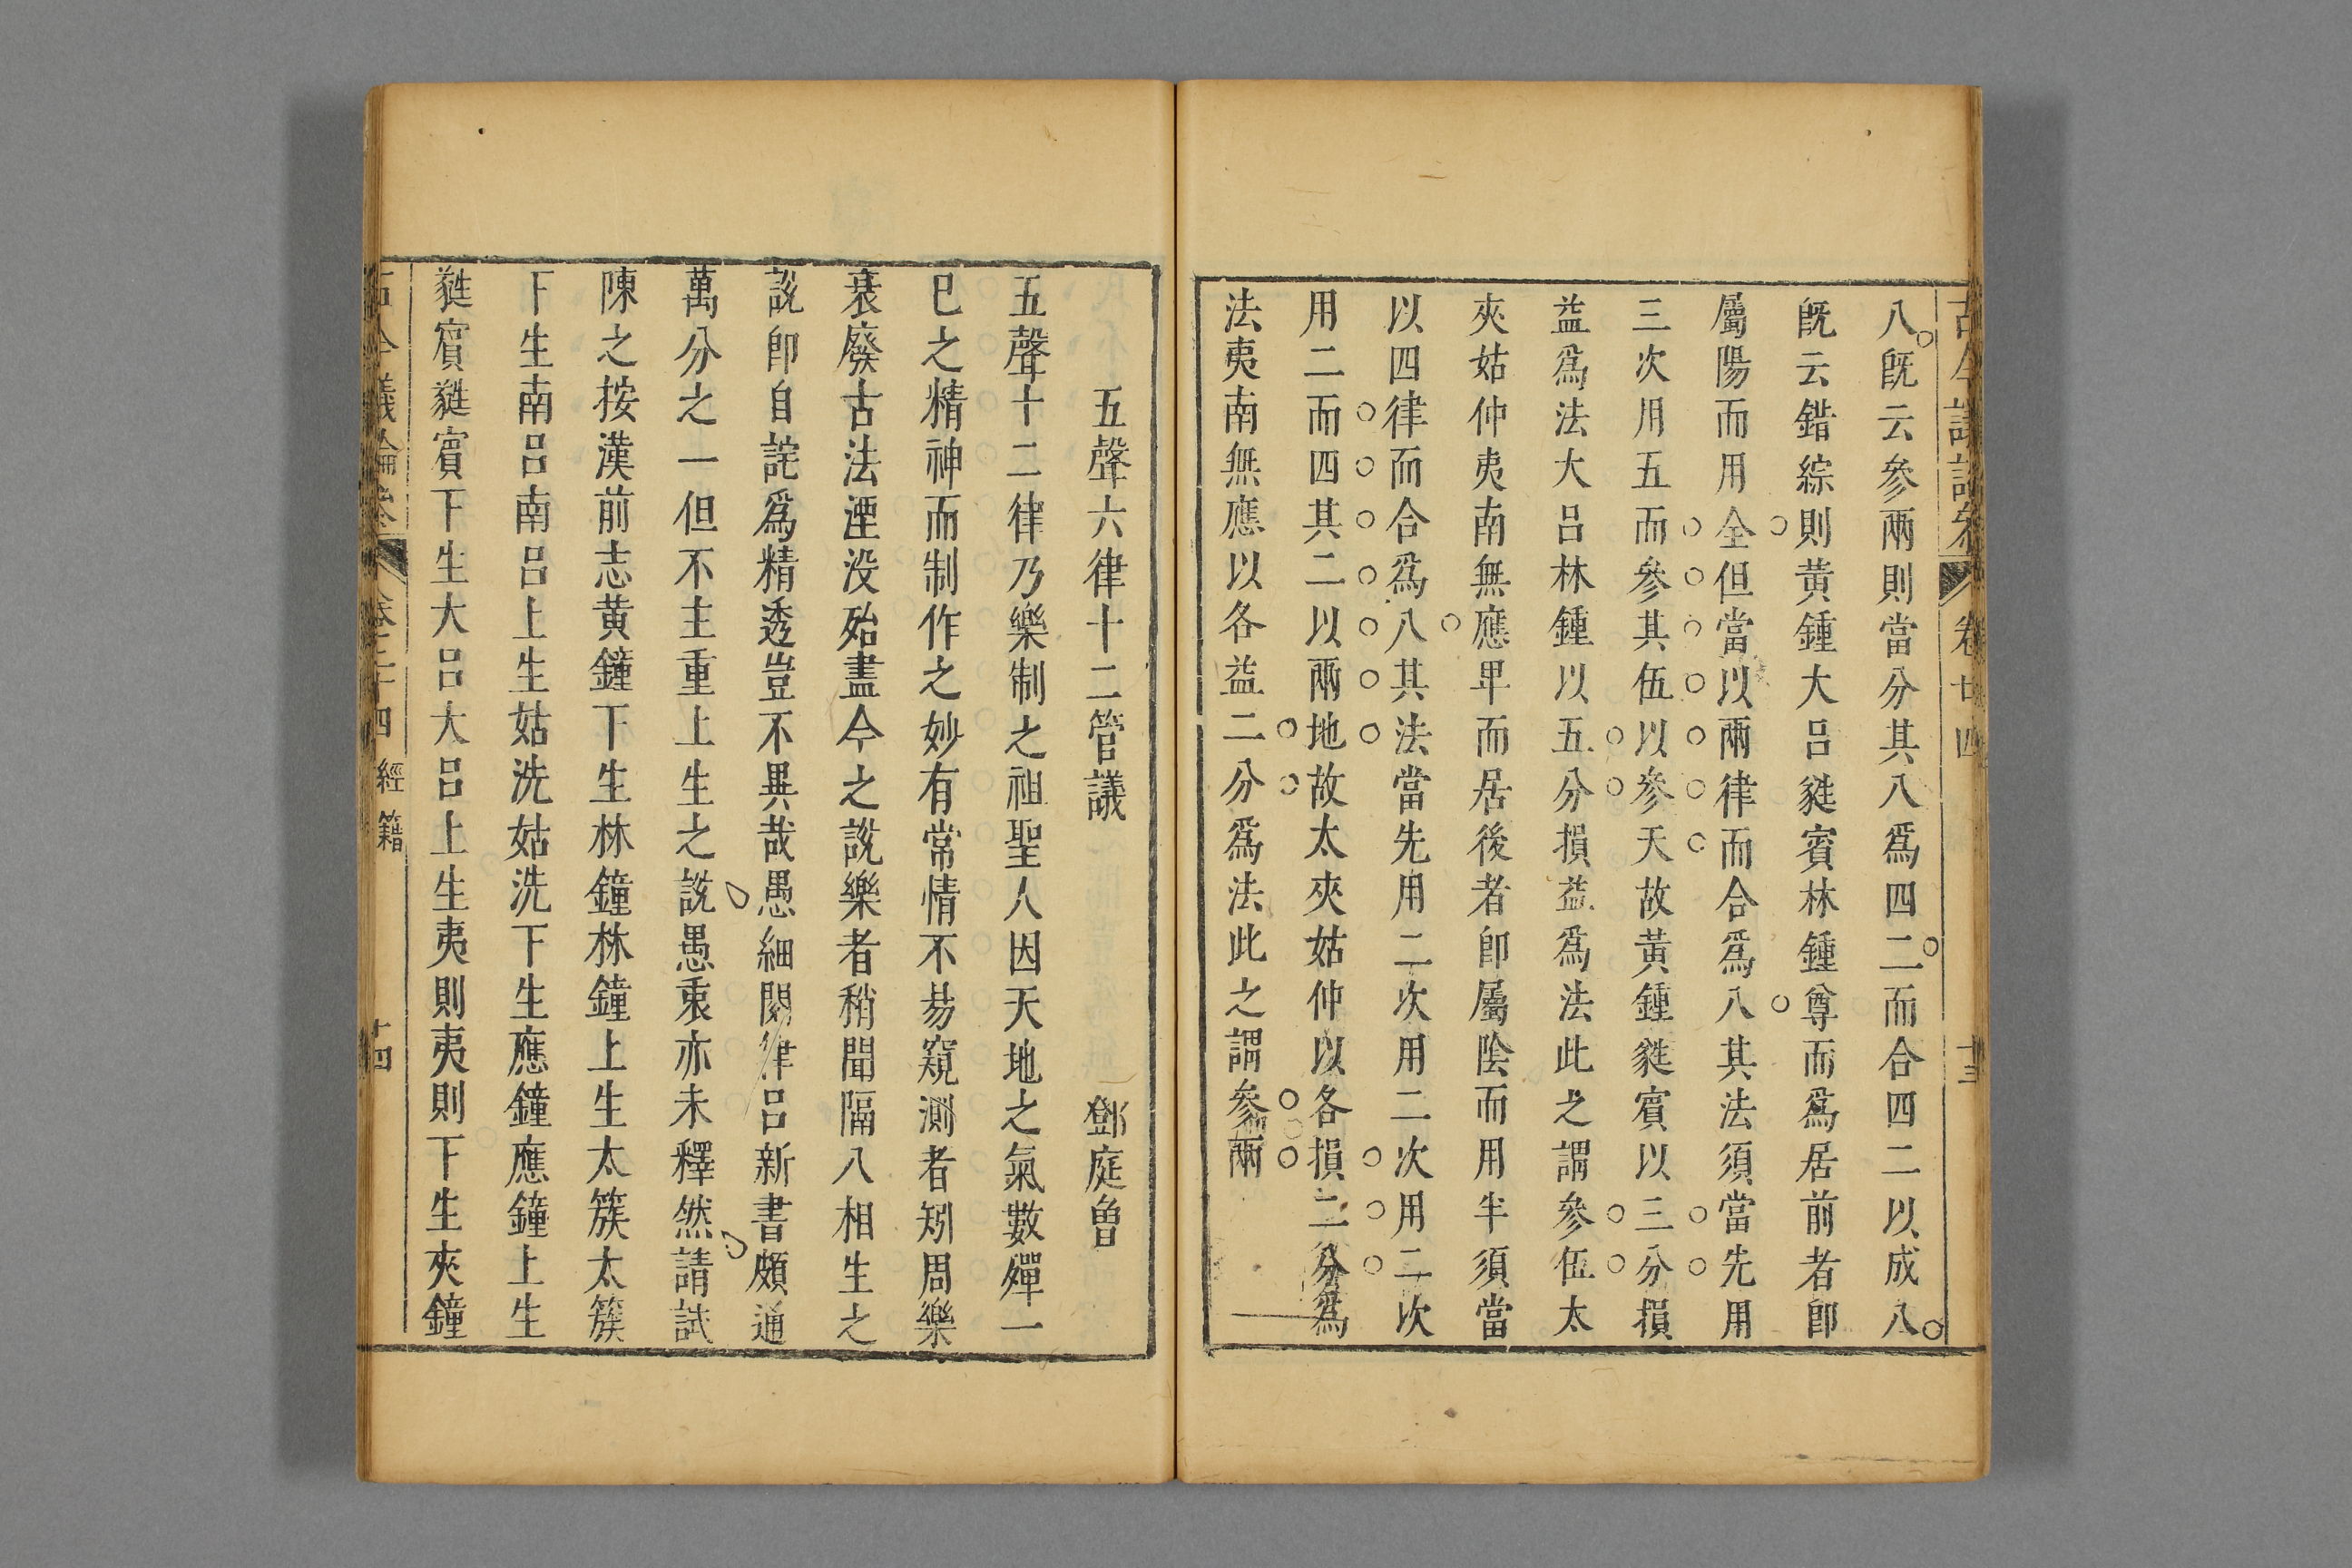 八既云參兩則當分其八爲四二而合四二以成八
旣云錯綜則黃鍾大呂蕤賓林鍾尊而爲居前者卽
屬陽而用全但當以兩律而合爲八其法須當先用
三次用五而參其伍以參天故黃鍾蕤賓以三分損
益爲法大呂林鍾以五分損益爲法此之謂參伍太
夾姑仲夷南無應卑而居後者卽屬陰而用半須當
以四律而合爲八其法當先用二次用二次用二次
用二而四其二以兩地故太夾姑仲以各損二分爲
法夷南無應以各益二分爲法此之謂參兩
五聲六律十二管議 鄧庭曾
五聲十二律乃樂制之祖聖人因天地之氣數殫一
已之精神而制作之妙有常情不易窺測者矧周樂
衰廢古法湮没殆盡今之說樂者稍聞隔八相生之
說卽自詫爲精透豈不異哉愚細閱律呂新書頗通
萬分之一但不主重上生之說愚衷亦未釋然請試
陳之按漢前志黃鐘下生林鐘林鐘上生太簇太簇
下生南呂南呂上生姑洗姑洗下生應鐘應鐘上生
蕤賓蕤賓下生大呂大呂上生夷則夷則下生夾鐘
古今議論參 卷二十四 經籍 十四